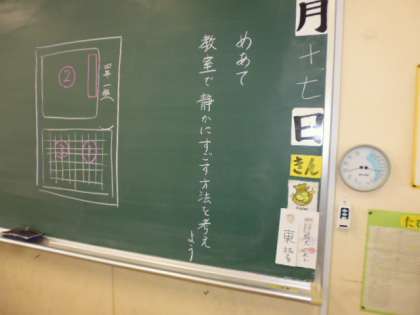 月
十七
日
きん
東
めあて
教室で静かにすごす方法を考え
よう
四年一組
②
③
①